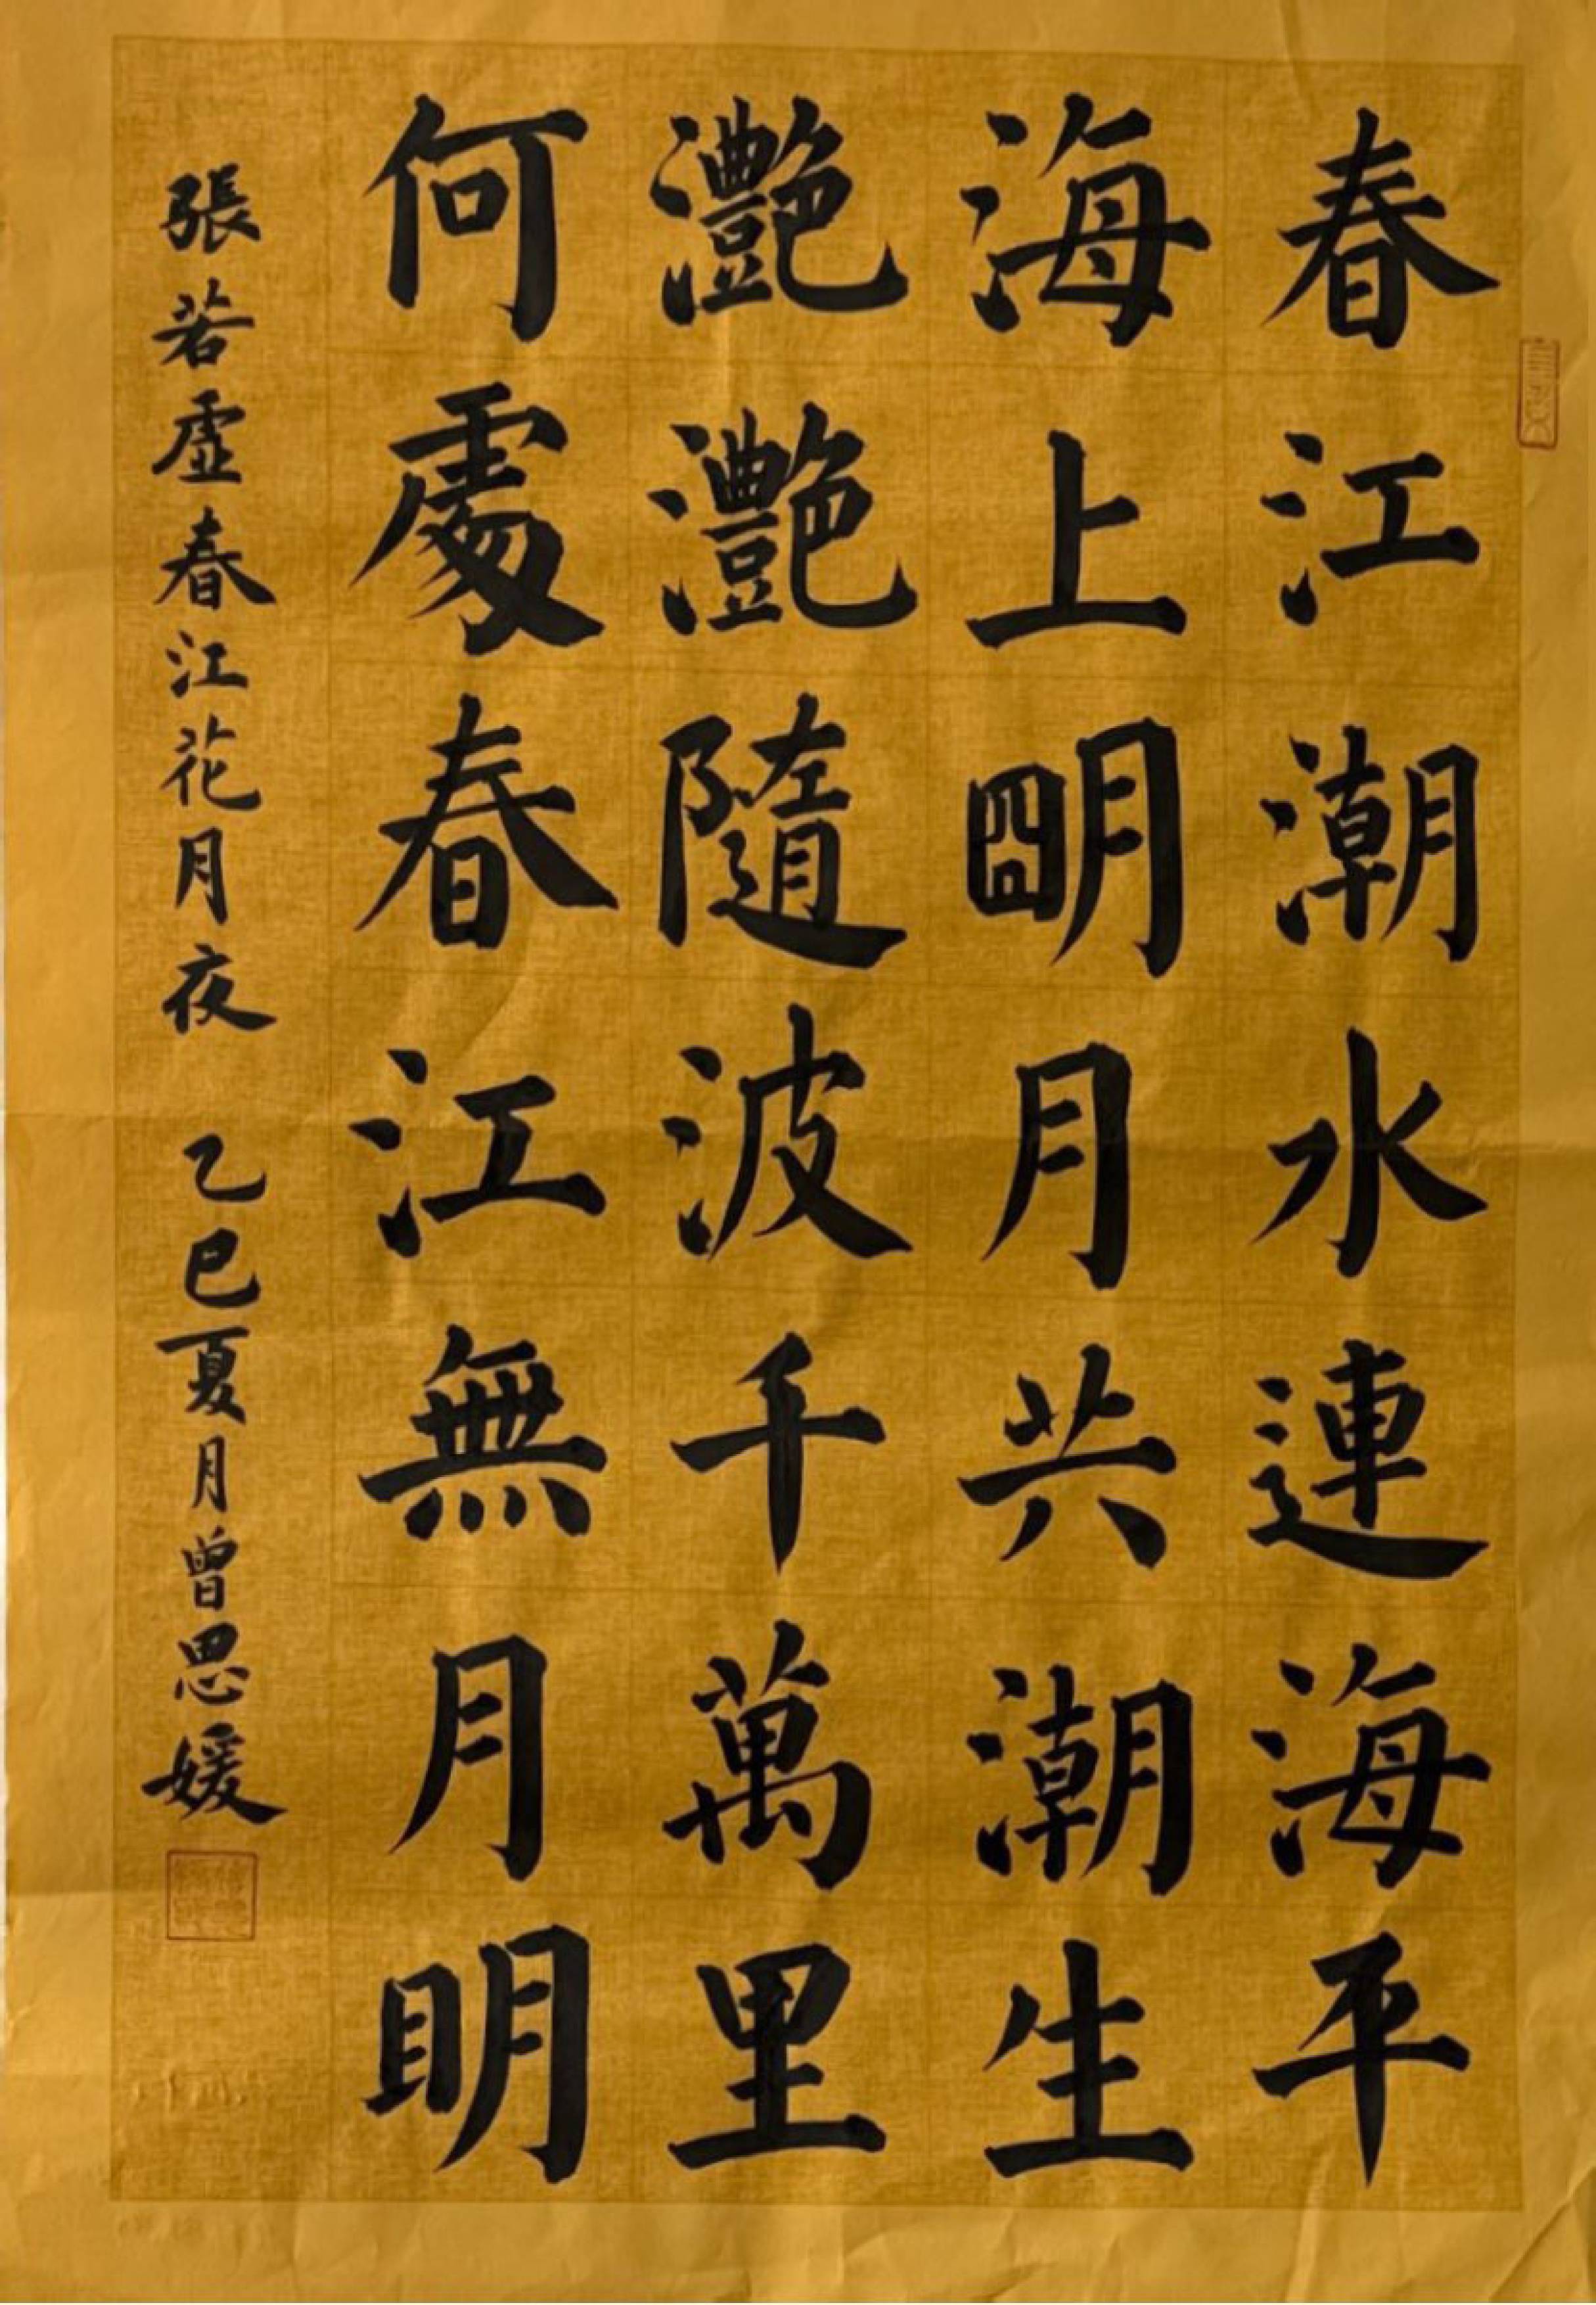 春江潮水連海平
海上明月共潮生
灧灧隨波千萬里
何處春江無月明
張若虛春江花月夜 乙巳夏月曾思媛